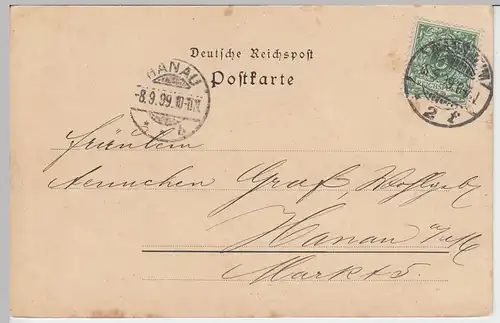 Deutsche Reichspost
Postkarte
HANAU
-8.9.99.10-11.N.
* b
2 f
Fräulein
Aennchen Graf, Wohlgeb.
Hanau a/M
Markt 5.